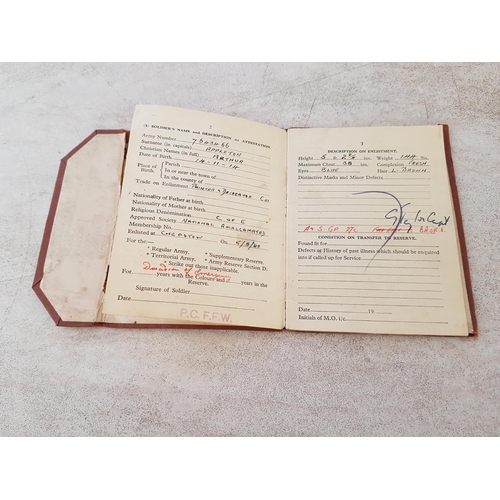 2
(1) SOLDIER'S NAME and DESCRIPTION on ATTESTATION.
Army Number 7843466
Surname (in capitals) APPLETON
Christian Names (in full) ARTHUR
Date of Birth 14-11-14
Place of Birth.
Parish
In or near the town of
In the county of
Trade on Enlistment PAINTER & DECORATOR
Nationality of Father at birth
Nationality of Mother at birth
Religious Denomination C of E
Approved Society NATIONAL AMALGAMATED
Membership No.
Enlisted at CHEPSTOW On
For the:—
* Regular Army. * Supplementary Reserve.
* Territorial Army. * Army Reserve Section D,
* Strike out those inapplicable.
Duration of Emergency
For years with the Colours and years in the
Reserve.
Signature of Soldier
Date
P.C.F.F.W.
3
DESCRIPTION ON ENLISTMENT.
Height 5 ft. ins. Weight lbs.
Maximum Chest 38 ins. Complexion FRESH
Eyes BLUE Hair L. BROWN
Distinctive Marks and Minor Defects
CONDITION ON TRANSFER TO RESERVE.
Found fit for
Defects or History of past illness which should be enquired
into if called up for Service
Date 19
Initials of M.O. i/c.